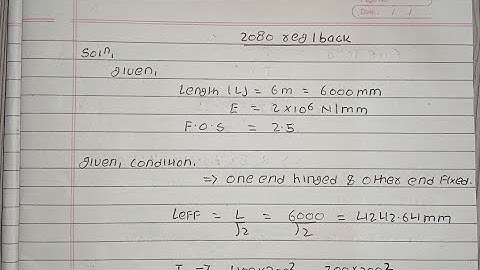 2080 reg/back
Soln,
given,
Length (L) = 6m = 6000mm
E = 2×10⁶ N/mm
F.O.S = 2.5
given, condition.
⇒ one end hinged & other end fixed.
Leff = L/√2 = 6000/√2 = 4242.641mm